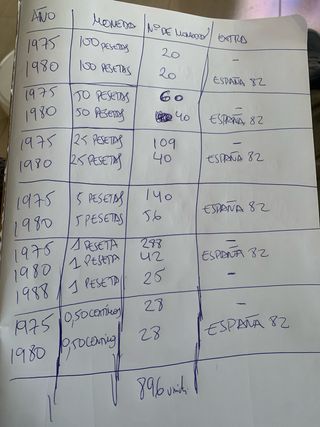 AÑO MONEDA Nº DE MONEDAS EXTRA
1975 100 PESETAS 20 -
1980 100 PESETAS 20 ESPAÑA 82
1975 50 PESETAS 60 -
1980 50 PESETAS 40 ESPAÑA 82
1975 25 PESETAS 109 -
1980 25 PESETAS 40 ESPAÑA 82
1975 5 PESETAS 140 -
1980 5 PESETAS 56 ESPAÑA 82
1975 1 PESETA 288 -
1980 1 PESETA 42 ESPAÑA 82
1988 1 PESETA 25 -
1975 0,50 CENTIMOS 28 -
1980 0,50 CENTIMOS 28 ESPAÑA 82
896